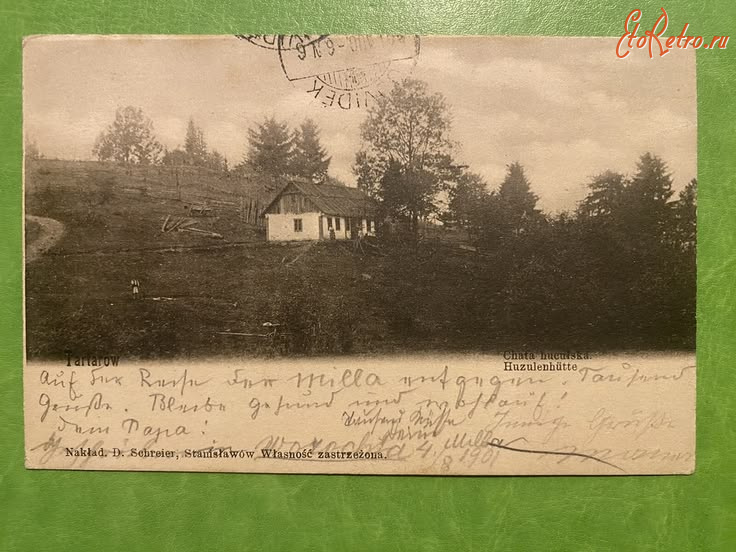 EtoRetro.ru
VIDÉK
Tartarow
Chata huculska.
Huzulenhütte
Auf der Reise der Milla entgegen. Tausend
Grüße. Bleibe gesund und wohlauf!
dem Papa!
Tausend Küsse
Innige Grüße
Milla
in
4/8 1901
Nakład. D. Schreier, Stanisławów Własność zastrzeżona.